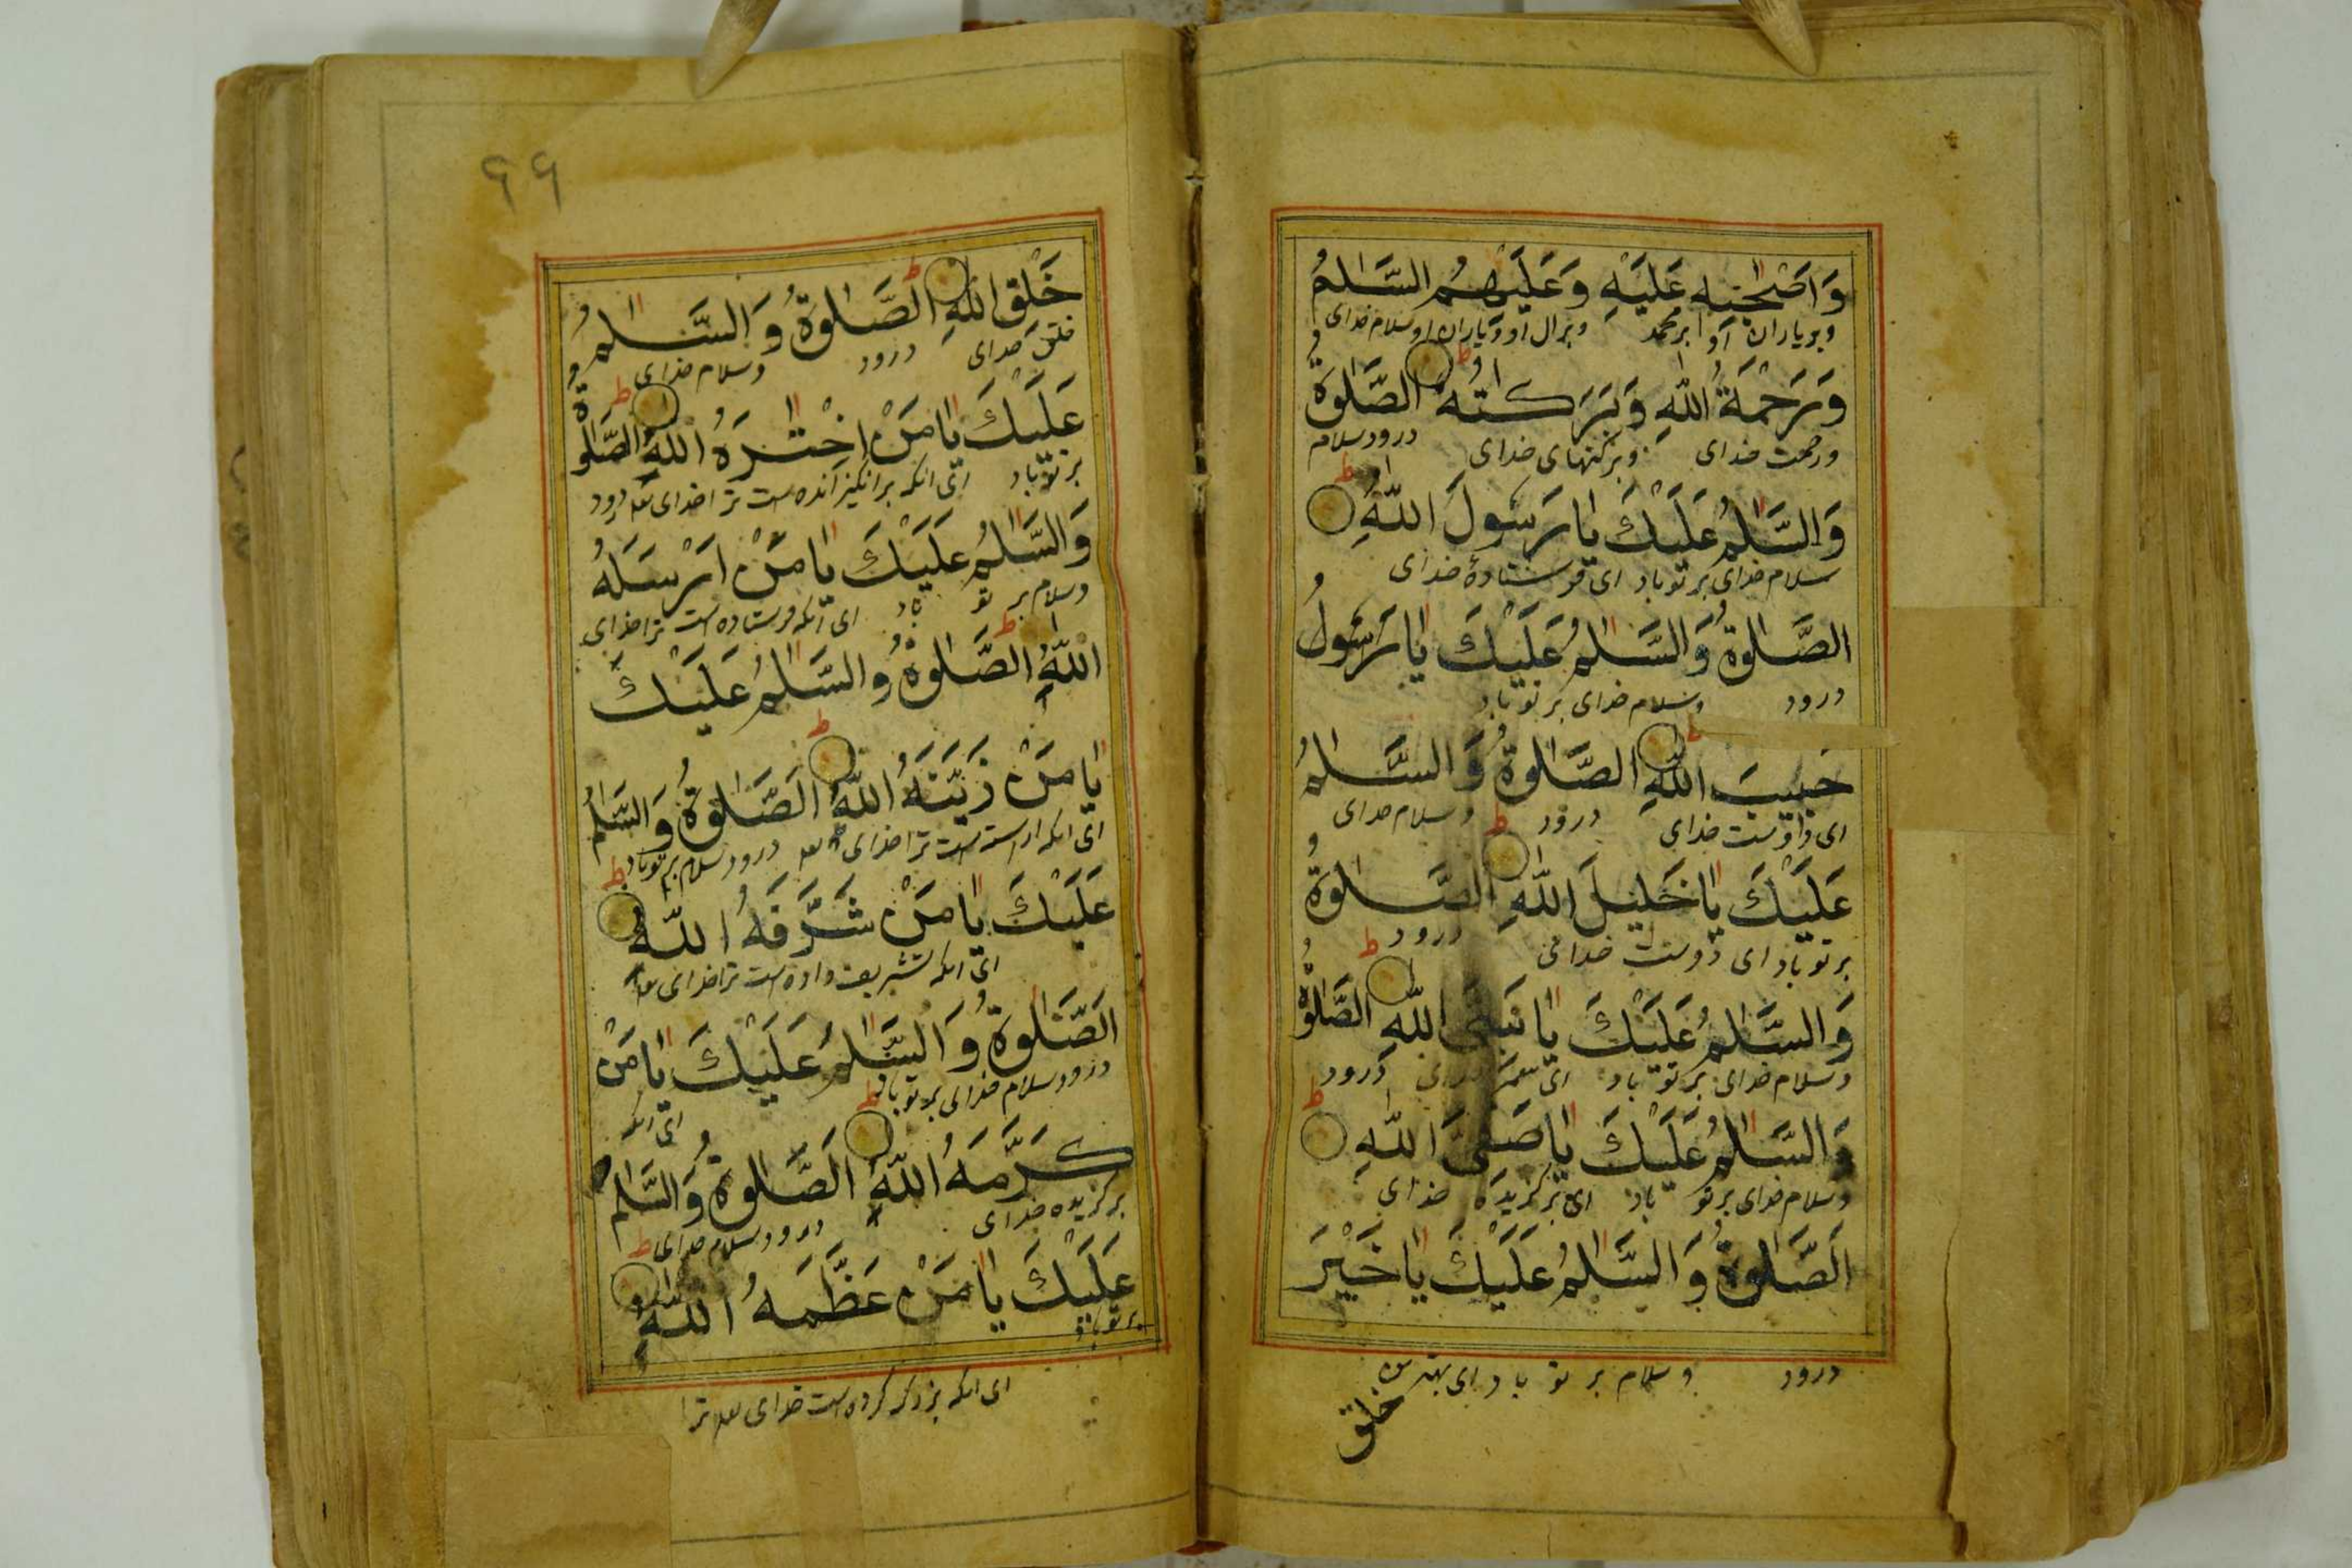 وَاَصْحٰبِهٖ عَلَيْهِ وَعَلَيْهِمُ السَّلٰمُ
وبریاران او ابر محمد وبرال او ویاران او سلام خدای
وَرَحْمَةُ اللّٰهِ وَبَرَكٰتُهُ الصَّلٰوةُ
ورحمت خدای وبرکتهای خدای درود سلام
وَالسَّلٰمُ عَلَيْكَ يٰا رَسُولَ اللّٰهِ
سلام خدای بر تو باد ای فرستادهٔ خدای
الصَّلٰوةُ وَالسَّلٰمُ عَلَيْكَ يٰا رَسُولُ
درود وسلام خدای بر تو باد
حَبِيبَ اللّٰهِ الصَّلٰوةُ وَالسَّلٰمُ
ای دوست خدای درود وسلام خدای
عَلَيْكَ يٰا خَلِيلَ اللّٰهِ الصَّلٰوةُ
بر تو باد ای دوست خدای درود
وَالسَّلٰمُ عَلَيْكَ يٰا نَبِىَّ اللّٰهِ الصَّلٰوةُ
وسلام خدای بر تو باد ای خدای درود
وَالسَّلٰمُ عَلَيْكَ يٰا صَفِىَّ اللّٰهِ
وسلام خدای بر تو باد ای برگزیده خدای
اَلصَّلٰوةُ وَالسَّلٰمُ عَلَيْكَ يٰا خَيْرَ
درود وسلام بر تو باد ای بهترین
خلق
٩٩
خَلْقِ اللّٰهِ الصَّلٰوةُ وَالسَّلٰمُ
خلق خدای درود وسلام خدای
عَلَيْكَ يٰا مَنْ اِخْتٰرَهُ اللّٰهُ الصَّلٰوةُ
بر تو باد ای انکه برانگیزانده است ترا خدای درود
وَالسَّلٰمُ عَلَيْكَ يٰا مَنْ اَرْسَلَهُ
وسلام بر تو باد ای آنکه فرستاده است ترا خدای
اللّٰهُ الصَّلٰوةُ وَالسَّلٰمُ عَلَيْكَ
يٰا مَنْ زَيَّنَهُ اللّٰهُ الصَّلٰوةُ وَالسَّلٰمُ
ای انکه اراسته است ترا خدای درود سلام بر تو باد
عَلَيْكَ يٰا مَنْ شَرَّفَهُ اللّٰهُ
ای انکه تشریف داده است ترا خدای
اَلصَّلٰوةُ وَالسَّلٰمُ عَلَيْكَ يٰا مَنْ
درود وسلام خدای بر تو باد ای انکه
كَرَّمَهُ اللّٰهُ الصَّلٰوةُ وَالسَّلٰمُ
برگزیده خدای درود وسلام خدای
عَلَيْكَ يٰا مَنْ عَظَّمَهُ اللّٰهُ
بر تو باد
ای انکه بزرگ کرده است خدای ترا